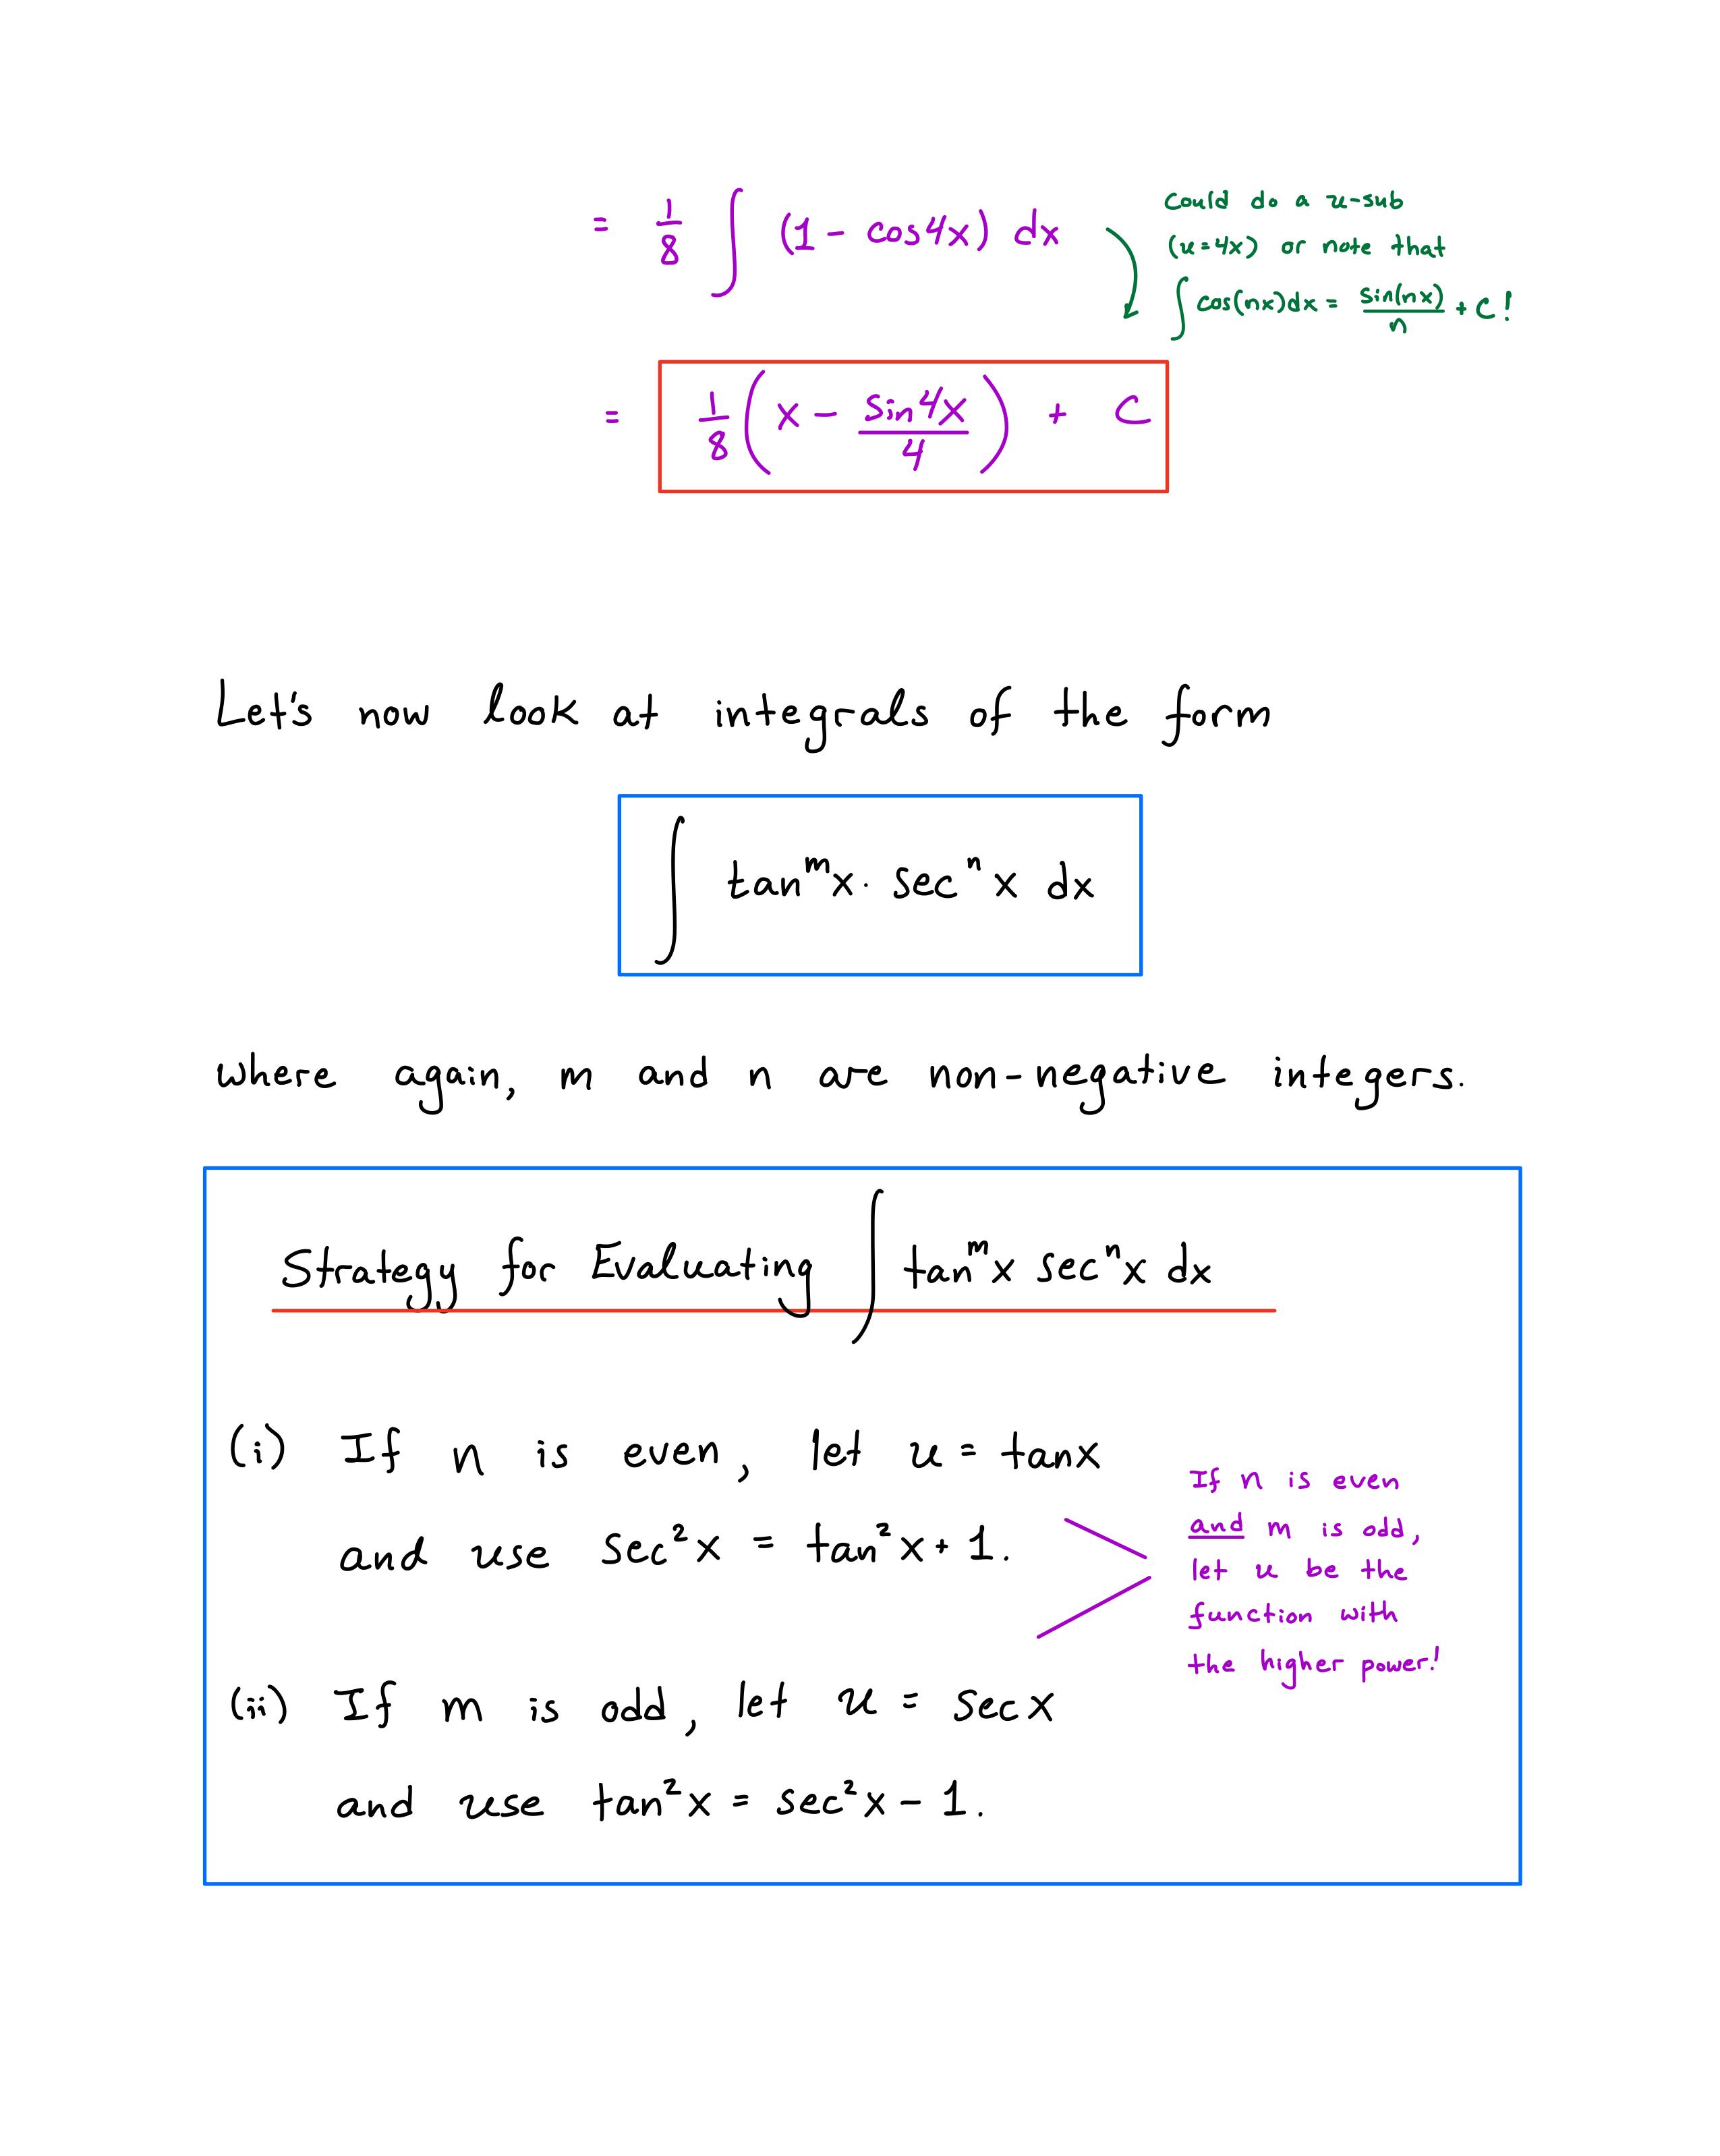 = 1/8 ∫ (1 - cos4x) dx
Could do a u-sub
(u=4x) or note that
∫ cos(nx)dx = sin(nx)/n + C!
= 1/8 (x - sin4x/4) + C
Let's now look at integrals of the form
∫ tanᵐx · secⁿx dx
where again, m and n are non-negative integers.
Strategy for Evaluating ∫ tanᵐx secⁿx dx
(i) If n is even, let u = tanx
and use sec²x = tan²x + 1.
If n is even
and m is odd,
let u be the
function with
the higher power!
(ii) If m is odd, let u = secx
and use tan²x = sec²x - 1.